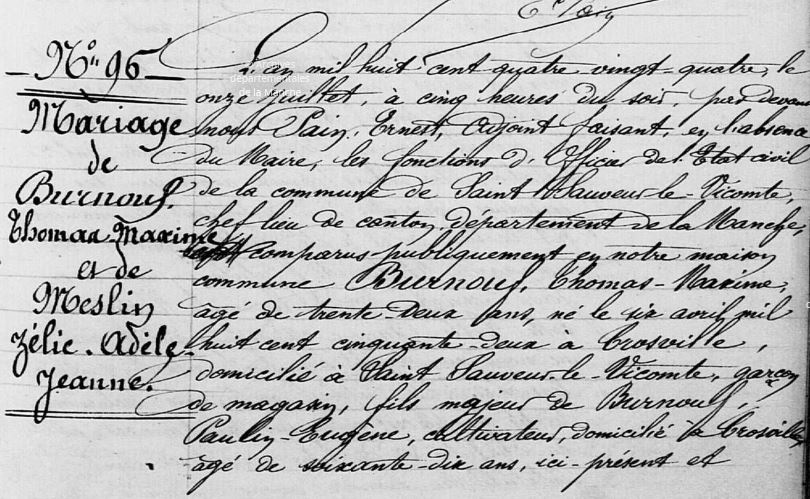 N° 96
Mariage
de
Burnouf.
Thomas-Maxime
et de
Meslin
Zélie. Adèle.
Jeanne.
Archives
départementales
de la Manche
L'an mil huit cent quatre vingt-quatre, le
onze Juillet, à cinq heures du soir, par devant
nous Sain, Ernest, Adjoint faisant, en l'absence
du Maire, les fonctions d'Officier de l'Etat civil
de la commune de Saint Sauveur-le-Vicomte,
chef lieu de canton, département de la Manche,
comparus publiquement en notre maison
commune Burnouf, Thomas-Maxime,
âgé de trente-deux ans, né le six avril mil
huit cent cinquante-deux à Crosville,
domicilié à Saint Sauveur-le-Vicomte, garçon
de magasin, fils majeur de Burnouf,
Paulin-Eugène, cultivateur, domicilié à Crosville,
âgé de soixante-dix ans, ici-présent et